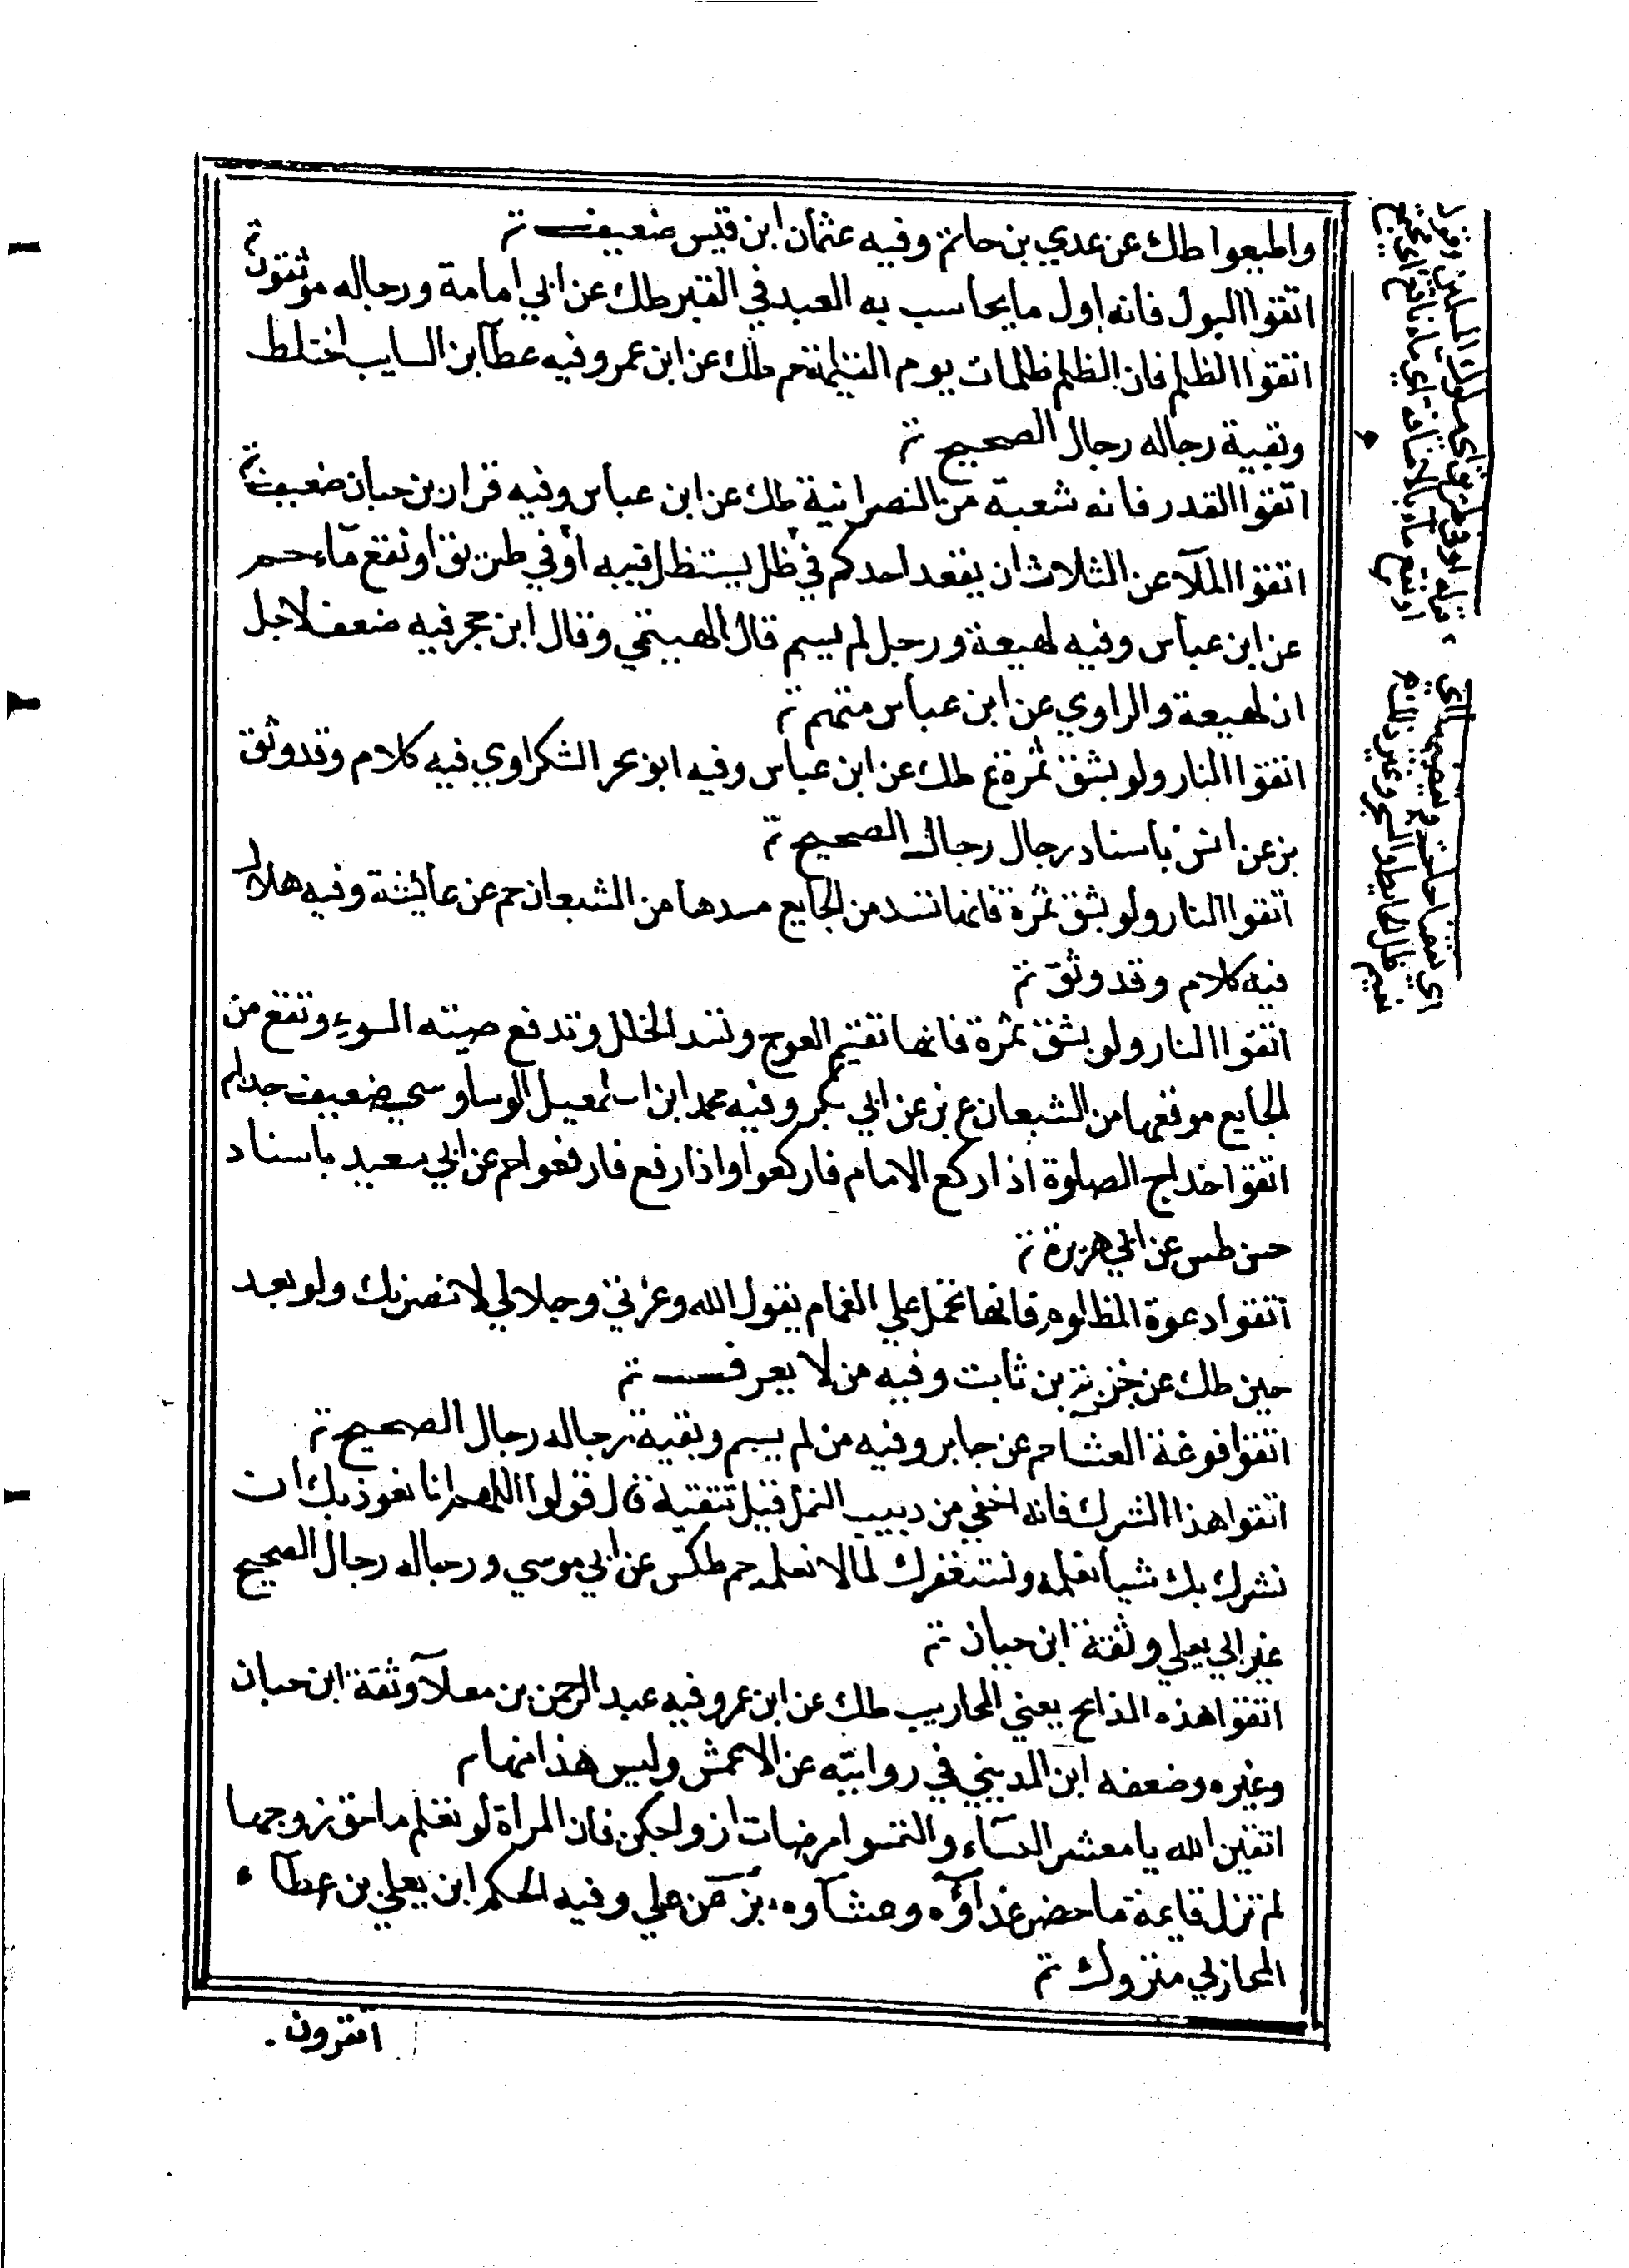 واطيعوا طك عن عدي بن حاتم وفيه عثمان ابن قيس ضعيف تم
اتقوا البول فانه اول ما يحاسب به العبد في القبر طك عن ابي امامة ورجاله موثقون تم
اتقوا الظلم فان الظلم ظلمات يوم القيامة حم طك عن ابن عمر وفيه عطآ بن السايب اختلط
وبقية رجاله رجال الصحيح تم
اتقوا القدر فانه شعبة من النصرانية طك عن ابن عباس وفيه قزار بن حبان ضعيف تم
اتقوا الملآعن الثلاث ان يقعد احدكم في ظل يستظل فيه أو في طريق او نقع مآء حم
عن ابن عباس وفيه لهيعة ورجل لم يسم قال الهيتمي وقال ابن حجر فيه ضعف لاجل
ان لهيعة والراوي عن ابن عباس متهم تم
اتقوا النار ولو بشق تمرة ع طك عن ابن عباس وفيه ابو بحر البكراوي فيه كلام وقد وثق
بز عن انس باسناد رجال رجال الصحيح تم
اتقوا النار ولو بشق تمرة فانها تسد من الجايع مسدها من الشبعان حم عن عايشة وفيه هلال
فيه كلام وقد وثق تم
اتقوا النار ولو بشق تمرة فانها تقيم العوج وتسد الخلل وتدفع ميته السوء وتقع من
الجايع موقعها من الشبعان ع بز عن ابي بكر وفيه محمد ابن اسمعيل الوساوسي ضعيف جدا م
اتقوا خداج الصلوة اذا ركع الامام فاركعوا واذا رفع فارفعوا حم عن ابي سعيد باسناد
حسن طس عن ابي هريرة تم
اتقوا دعوة المظلوم فانها تحمل علي الغمام يقول الله وعزتي وجلالي لانصرنك ولو بعد
حين طك عن خزيمة بن ثابت وفيه من لا يعرف تم
اتقوا فوغة العشا حم عن جابر وفيه من لم يسم وبقية رجاله رجال الصحيح تم
اتقوا هذا الشرك فانه اخفي من دبيب النمل قيل تتقيه قال قولوا اللهم انا نعوذ بك ان
نشرك بك شيا نعلمه ونستغفرك لما لا نعلمه حم طكس عن ابي موسي ورجاله رجال الصحيح
غير ابي يعلي وثقه ابن حبان تم
اتقوا هذه المذابح يعني المحاريب طك عن ابن عمر وفيه عبد الرحمن بن معلآ وثقة ابن حبان
وغيره وضعفه ابن المديني في روايته عن الاعمش وليس هذا منها م
اتقين الله يا معشر النسآء والتمسوا مرضات ازواجكن فان المراة لو تعلم ما حق زوجها
لم تزل قايمة ما حضر غدآؤه وعشآوه بز عن علي وفيه الحكم ابن يعلي بن عطآء
المحاربي متروك تم
اتقرون